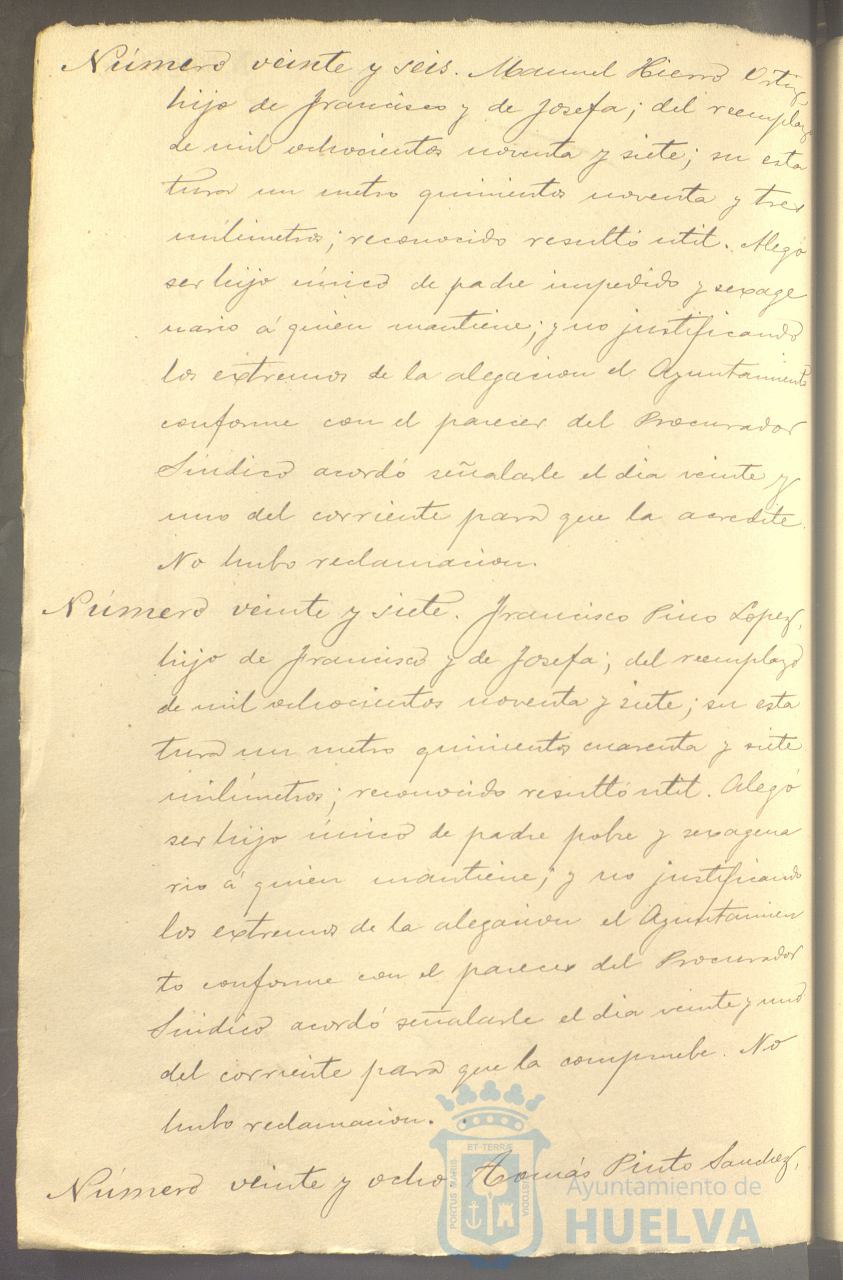 Número veinte y seis. Manuel Hierro Ortiz,
hijo de Francisco y de Josefa; del reemplazo
de mil ochocientos noventa y siete; su esta
tura un metro quinientos noventa y tres
milimetros; reconocido resultó util. Alegó
ser hijo único de padre impedido y sexage
nario á quien mantiene; y no justificando
los extremos de la alegacion el Ayuntamiento
conforme con el parecer del Procurador
Sindico acordó señalarle el dia veinte y
uno del corriente para que la acredite.
No hubo reclamacion.
Número veinte y siete. Francisco Pino Lopez,
hijo de Francisco y de Josefa; del reemplazo
de mil ochocientos noventa y siete; su esta
tura un metro quinientos cuarenta y siete
milímetros; reconocido resultó util. Alegó
ser hijo único de padre pobre y sexagena
rio á quien mantiene; y no justificando
los extremos de la alegacion el Ayuntamien
to conforme con el parecer del Procurador
Sindico acordó señalarle el dia veinte y uno
del corriente para que la compruebe. No
hubo reclamacion.
Número veinte y ocho Tomás Pinto Sanchez,
ET TERRÆ
PORTUS MARIS
CUSTODIA
Ayuntamiento de
HUELVA